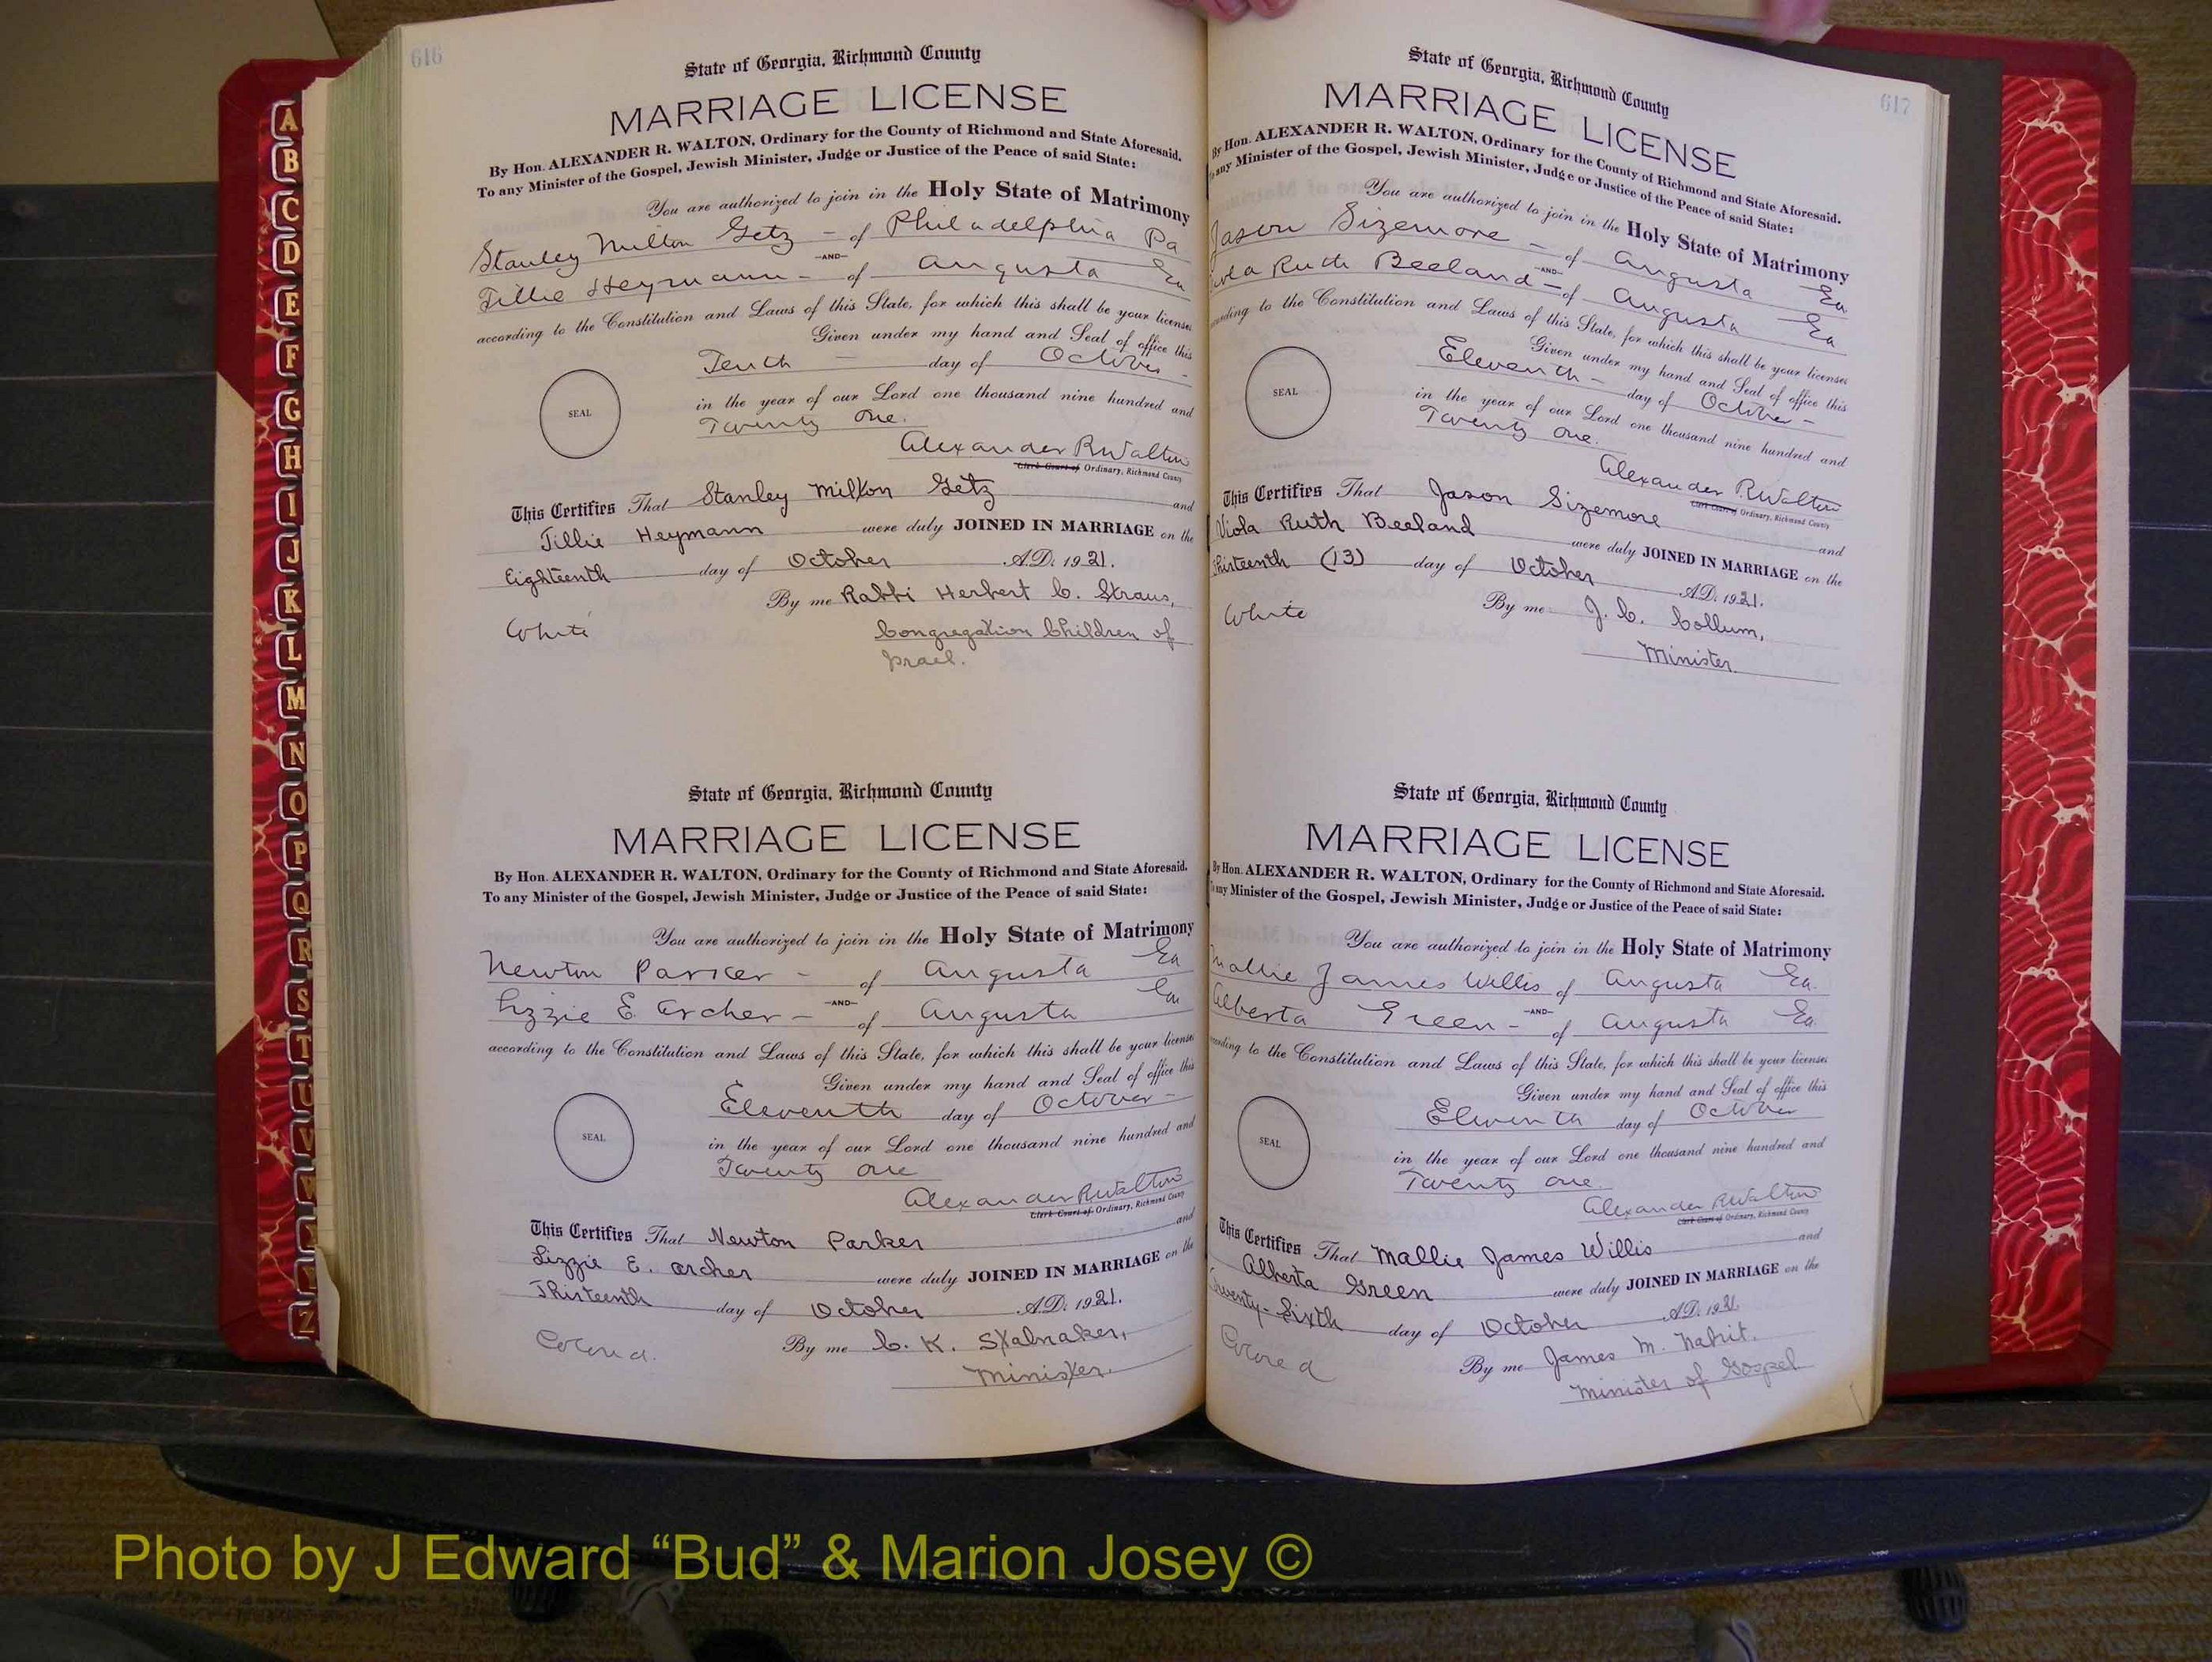 616
State of Georgia, Richmond County
MARRIAGE LICENSE
By Hon. ALEXANDER R. WALTON, Ordinary for the County of Richmond and State Aforesaid.
To any Minister of the Gospel, Jewish Minister, Judge or Justice of the Peace of said State:
You are authorized to join in the Holy State of Matrimony
Stanley Milton Getz - of Philadelphia Pa
—AND—
Tillie Heymann - of Augusta Ga
according to the Constitution and Laws of this State, for which this shall be your license
Given under my hand and Seal of office this
Tenth — day of October -
SEAL
in the year of our Lord one thousand nine hundred and
Twenty One.
Alexander R Walton
Clerk Court of Ordinary, Richmond County
This Certifies That Stanley Milton Getz and
Tillie Heymann were duly JOINED IN MARRIAGE on the
Eighteenth day of October A.D. 1921.
By me Rabbi Herbert C. Straus,
White Congregation Children of
Israel.
State of Georgia, Richmond County
MARRIAGE LICENSE
By Hon. ALEXANDER R. WALTON, Ordinary for the County of Richmond and State Aforesaid.
To any Minister of the Gospel, Jewish Minister, Judge or Justice of the Peace of said State:
You are authorized to join in the Holy State of Matrimony
Newton Parker - of Augusta Ga
—AND—
Lizzie E. Archer - of Augusta Ga
according to the Constitution and Laws of this State, for which this shall be your license
Given under my hand and Seal of office this
Eleventh day of October -
SEAL
in the year of our Lord one thousand nine hundred and
Twenty One
Alexander R Walton
Clerk Court of Ordinary, Richmond County
This Certifies That Newton Parker and
Lizzie E. Archer were duly JOINED IN MARRIAGE on the
Thirteenth day of October A.D. 1921.
Colored. By me C. K. Stalnaker,
Minister.
617
State of Georgia, Richmond County
MARRIAGE LICENSE
By Hon. ALEXANDER R. WALTON, Ordinary for the County of Richmond and State Aforesaid.
To any Minister of the Gospel, Jewish Minister, Judge or Justice of the Peace of said State:
You are authorized to join in the Holy State of Matrimony
Jason Sizemore - of Augusta Ga
—AND—
Viola Ruth Beeland - of Augusta Ga
according to the Constitution and Laws of this State, for which this shall be your license
Given under my hand and Seal of office this
Eleventh - day of October -
SEAL
in the year of our Lord one thousand nine hundred and
Twenty One.
Alexander R Walton
Clerk Court of Ordinary, Richmond County
This Certifies That Jason Sizemore and
Viola Ruth Beeland were duly JOINED IN MARRIAGE on the
Thirteenth (13) day of October A.D. 1921.
White By me J. C. Collum,
Minister
State of Georgia, Richmond County
MARRIAGE LICENSE
By Hon. ALEXANDER R. WALTON, Ordinary for the County of Richmond and State Aforesaid.
To any Minister of the Gospel, Jewish Minister, Judge or Justice of the Peace of said State:
You are authorized to join in the Holy State of Matrimony
Mallie James Willis of Augusta Ga.
—AND—
Alberta Green - of Augusta Ga
according to the Constitution and Laws of this State, for which this shall be your license
Given under my hand and Seal of office this
Eleventh day of October
SEAL
in the year of our Lord one thousand nine hundred and
Twenty One.
Alexander R Walton
Clerk Court of Ordinary, Richmond County
This Certifies That Mallie James Willis and
Alberta Green were duly JOINED IN MARRIAGE on the
Twenty-Sixth day of October A.D. 1921
Colored By me James M. Nabrit.
Minister of Gospel
A
B
C
D
E
F
G
H
I
J
K
L
M
N
O
P
Q
R
S
T
U
V
W
Z
Photo by J Edward “Bud” & Marion Josey ©